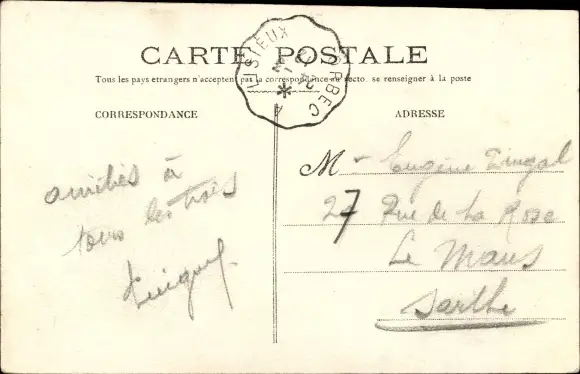 CARTE POSTALE
Tous les pays etrangers n'acceptent pas la correspondance au recto. se renseigner à la poste
LISIEUX
ORBEC
CORRESPONDANCE
amitiés à
tous les trois
ADRESSE
M
Eugène
27 Rue de La Rose
Le Mans
Sarthe